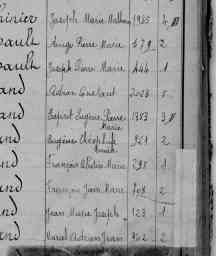 inier Joseph Marie Mathurin 1965 4
bault Ange Pierre Marie 479 2
bault Joseph Pierre Marie 444 1
and Adrien Constant 2028 5
and Baptist Eugène Pierre Marie 1383 3
and Eugène Théophile 961 2
and François Marie 298 1
and François Jean Marie 708 2
and Jean Marie Joseph 123 1
and Marcel Adrien Jean 962 2